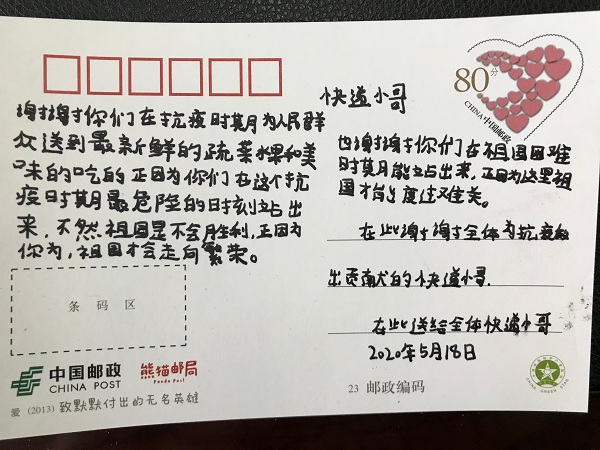 80分
CHINA 中国邮政
快递小哥
谢谢你们在抗疫时期为人民群
众送到最新鲜的蔬菜水果和美
味的吃的正因为你们在这个抗
疫时期最危险的时刻站出
来，不然祖国是不会胜利，正因为
你为，祖国才会走向繁荣。
也谢谢你们在祖国困难
时期能站出来，正因为这里祖
国才能度过难关。
在此谢谢全体为抗疫做
出贡献的快递小哥.
在此送给全体快递小哥
2020年5月18日
条码区
中国邮政
CHINA POST
熊猫邮局
Panda Post
23 邮政编码
爱 (2013) 致默默付出的无名英雄